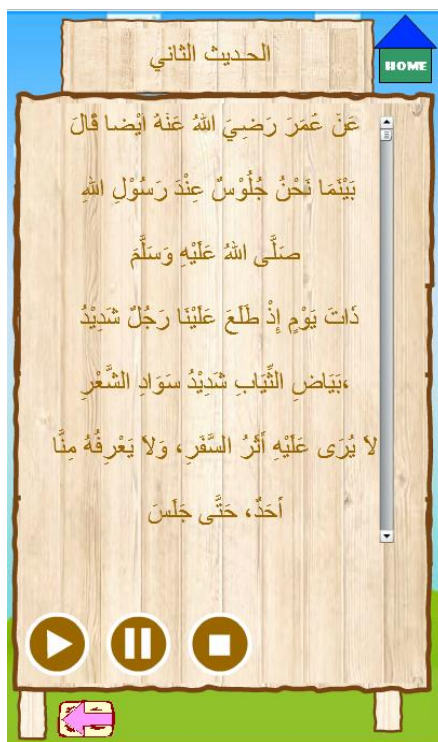 الحديث الثاني
HOME
عَنْ عُمَرَ رَضِيَ اللهُ عَنْهُ أَيْضا قَالَ
بَيْنَمَا نَحْنُ جُلُوْسٌ عِنْدَ رَسُوْلِ اللهِ
صَلَّى اللهُ عَلَيْهِ وَسَلَّمَ
ذَاتَ يَوْمٍ إِذْ طَلَعَ عَلَيْنَا رَجُلٌ شَدِيْدُ
،بَيَاضِ الثِّيَابِ شَدِيْدُ سَوَادِ الشَّعْرِ
لاَ يُرَى عَلَيْهِ أَثَرُ السَّفَرِ، وَلاَ يَعْرِفُهُ مِنَّا
أَحَدٌ، حَتَّى جَلَسَ